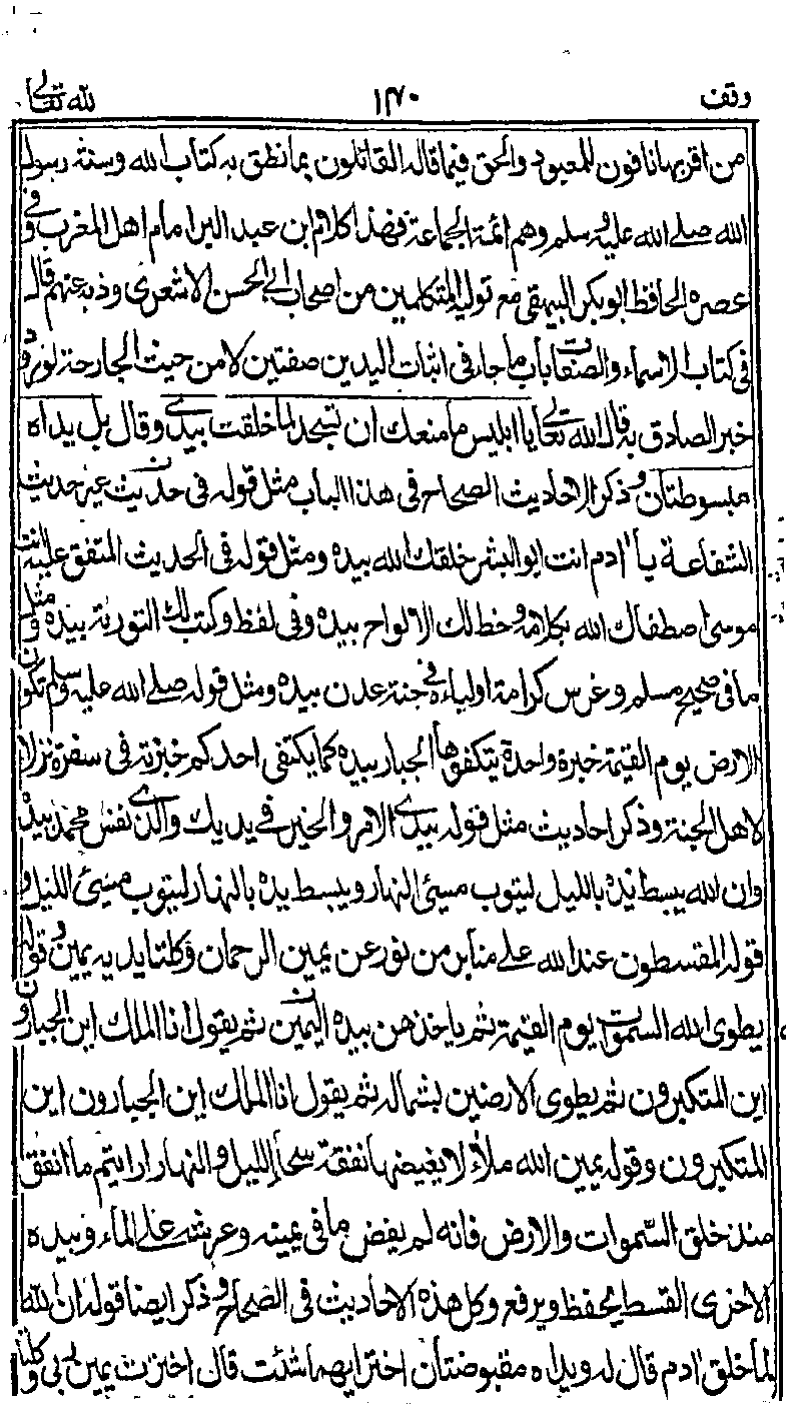 وقف ١٣٠ لله تعالى
من اقر بها نافون للمعبود والحق فيما قاله القائلون بما نطق به كتاب الله وسنة رسول
الله صلى الله عليه وسلم وهم ائمة الجماعة فهذا كلام ابن عبد البر امام اهل المغرب وفي
عصره الحافظ ابو بكر البيهقي مع توليه المتكلمين من اصحاب ابي الحسن الاشعرى وذبه عنهم قال
فى كتاب الاسماء والصفات باب ما جاء فى اثبات اليدين صفتين لا من حيث الجارحة لورود
خبر الصادق به قال الله تعالى يا ابليس ما منعك ان تسجد لما خلقت بيدي وقال بل يداه
مبسوطتان وذكر الاحاديث الصحاح فى هذا الباب مثل قوله فى غير حديث حديث
الشفاعة يا ادم انت ابو البشر خلقك الله بيده ومثل قوله فى الحديث المتفق عليه انت
موسى اصطفاك الله بكلامه وخط لك الالواح بيده وفى لفظ وكتب لك التورية بيده ومثل
ما فى صحيح مسلم وغرس كرامة اولياءه فى جنة عدن بيده ومثل قوله صلى الله عليه وسلم تكون
الارض يوم القيمة خبزة واحدة يتكفؤها الجبار بيده كما يكتفى احدكم خبزته فى سفرة نزلا
لاهل الجنة وذكر احاديث مثل قوله بيدي الامر والخير فى يديك والذى نفس محمد بيده
وان الله يبسط يده بالليل ليتوب مسئ النهار ويبسط يده بالنهار ليتوب مسئ الليل و
قوله المقسطون عند الله على منابر من نور عن يمين الرحمان وكلتا يديه يمين وقوله
يطوى الله السموات يوم القيمة ثم ياخذهن بيده اليمنى ثم يقول انا الملك اين الجبارون
اين المتكبرون ثم يطوى الارضين بشماله ثم يقول انا الملك اين الجبارون اين
المتكبرون وقوله يمين الله ملأ لا يغيضها نفقة سحاء الليل والنهار ارايتم ما انفق
منذ خلق السموات والارض فانه لم يغض ما فى يمينه وعرشه على الماء وبيده
الاخرى القسط يخفظ ويرفع وكل هذه الاحاديث فى الصحاح وذكر ايضا قوله ان الله
لما خلق ادم قال له ويداه مقبوضتان اختر ايهما شئت قال اخترت يمين ربى وكلتا